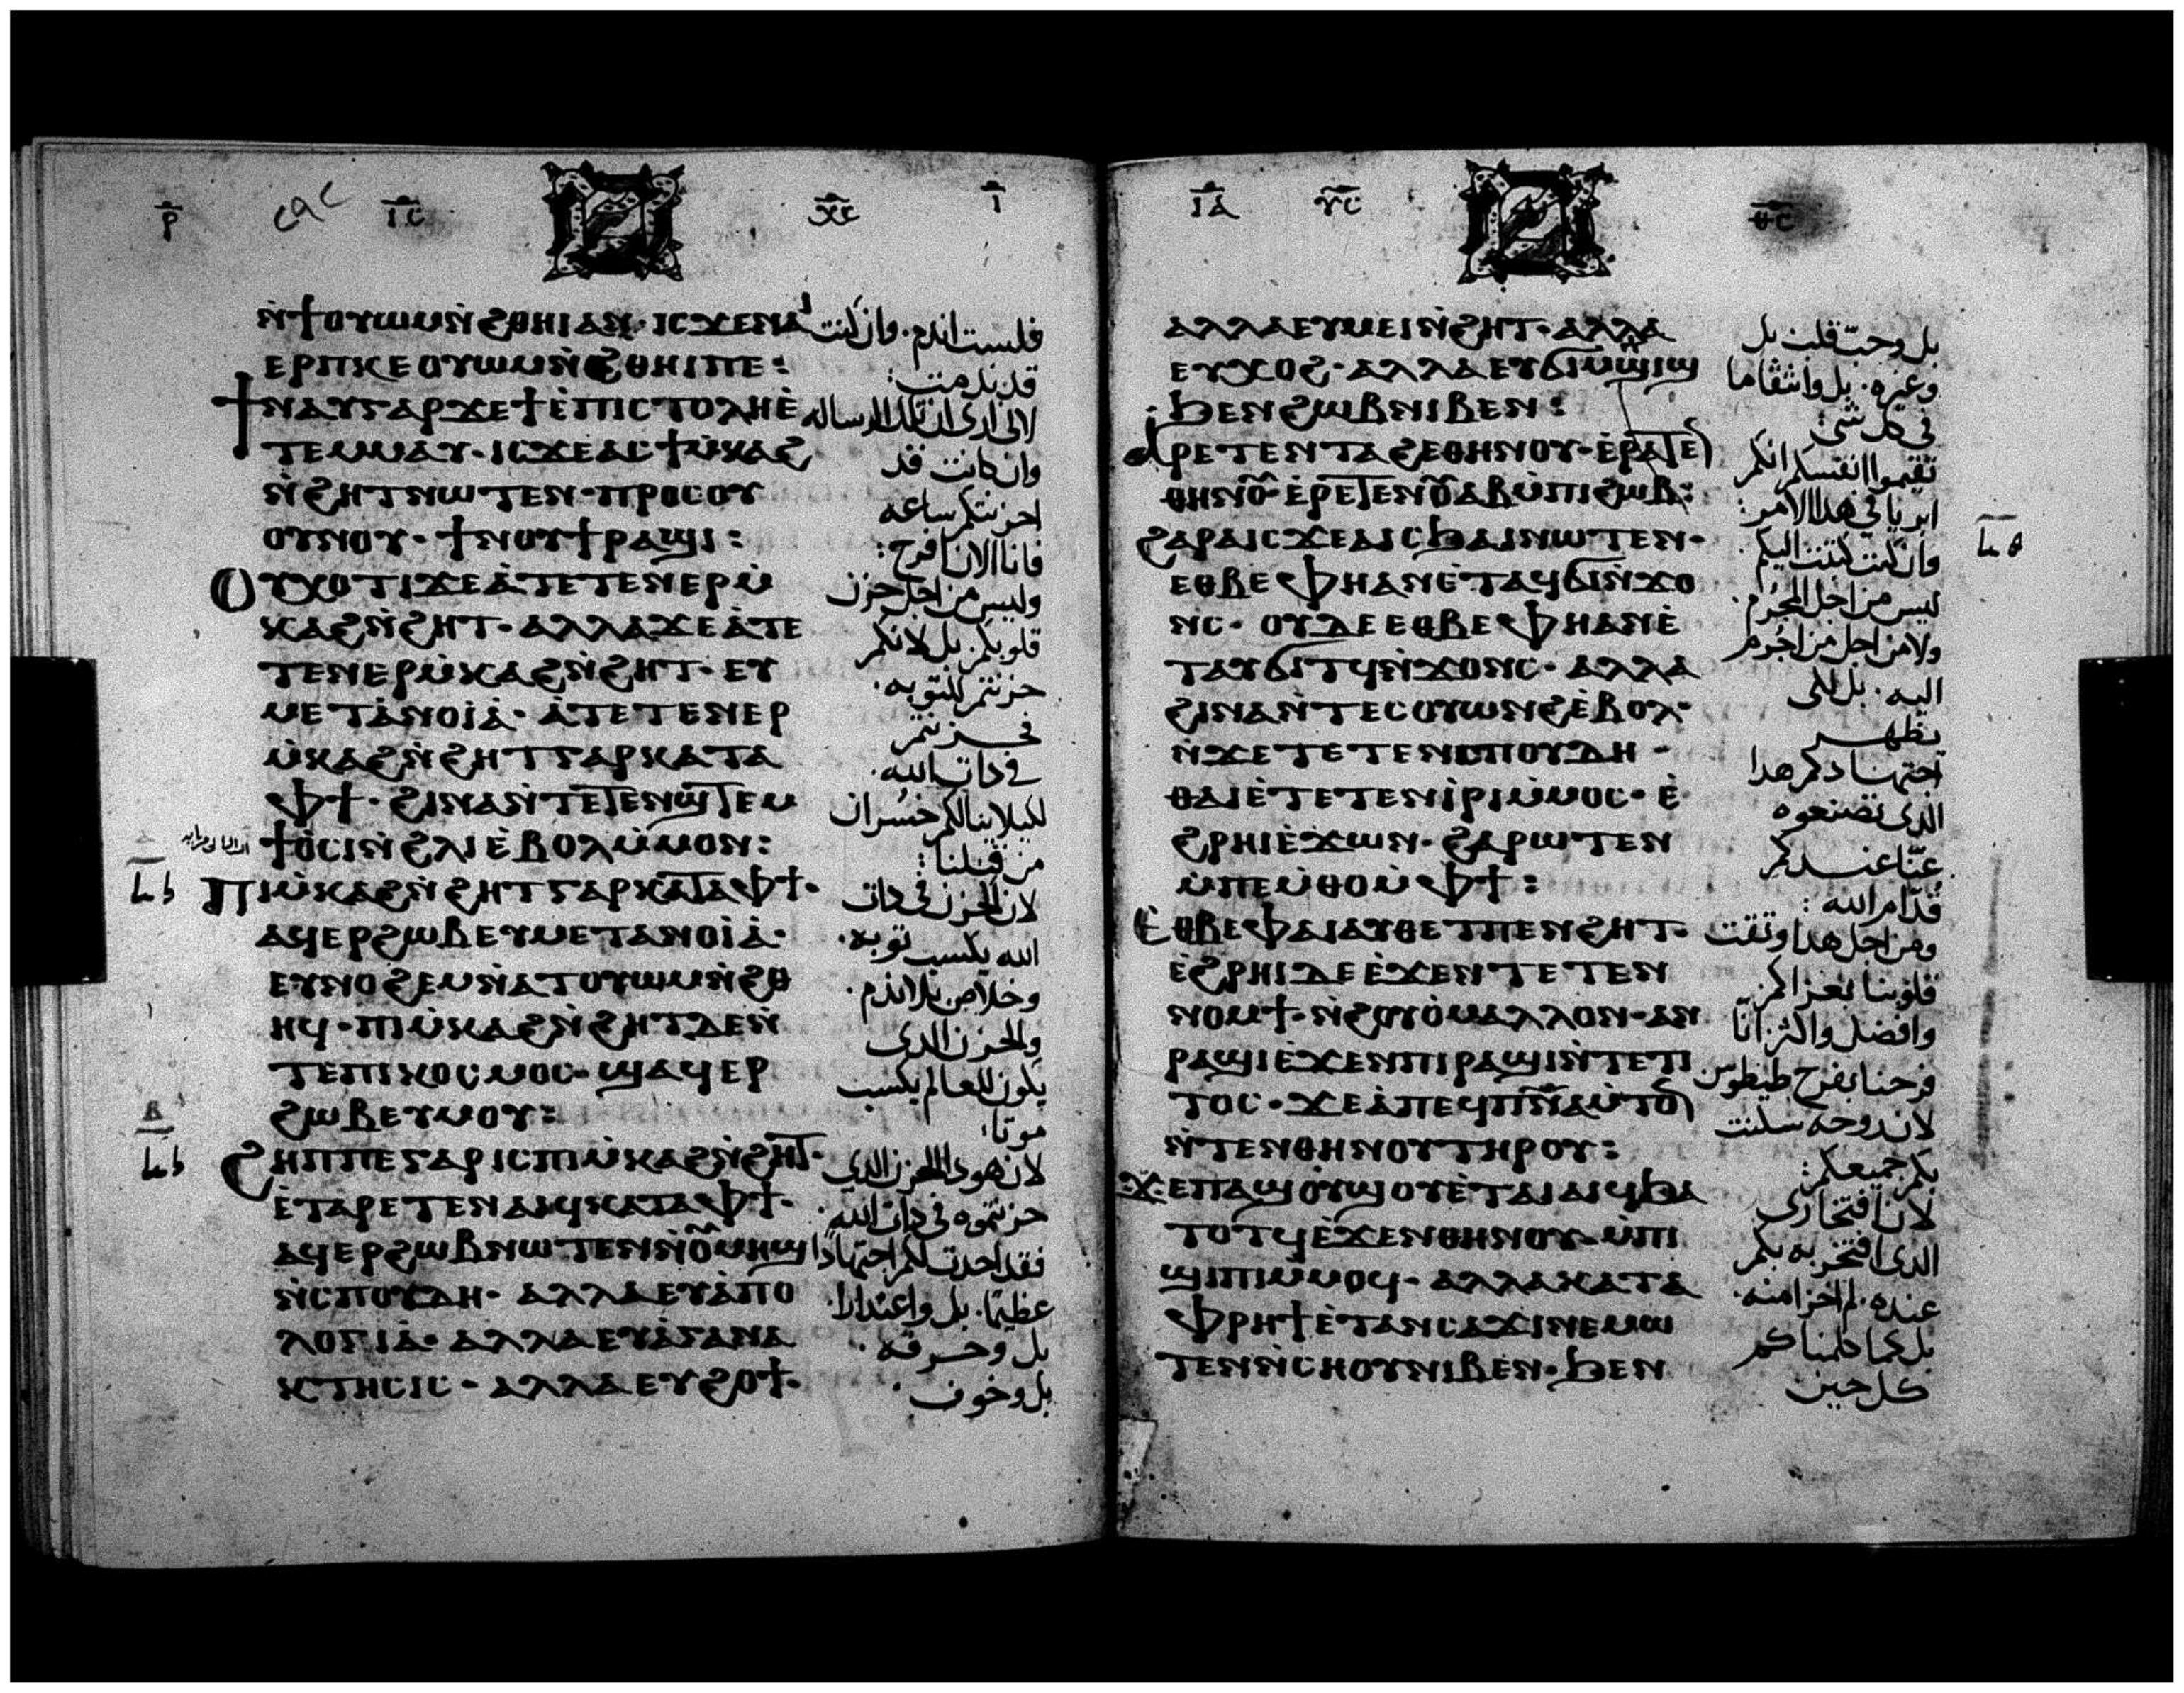 ⲓ̅ⲥ̅ ⲭ̅ⲥ̅
ⲛ̀ϯⲟⲩⲱⲙⲛ̀ϩⲑⲏⲓⲁⲛ· ⲓⲥϫⲉⲛⲁⲓ
ⲉⲣⲡⲕⲉⲟⲩⲱⲙⲛ̀ϩⲑⲏⲓⲡⲉ:
ϯⲛⲁⲩⲅⲁⲣϫⲉϯⲉ̀ⲡⲓⲥⲧⲟⲗⲏⲉ̀
ⲧⲉⲙⲙⲁⲩ· ⲓⲥϫⲉⲁⲥϯⲙ̀ⲕⲁϩ
ⲛ̀ϩⲏⲧⲛⲱⲧⲉⲛ· ⲡⲣⲟⲥⲟⲩ
ⲟⲩⲛⲟⲩ· ϯⲛⲟⲩϯⲣⲁϣⲓ:
ⲟⲩⲭⲟⲧⲓϫⲉⲁ̀ⲧⲉⲧⲉⲛⲉⲣⲙ̀
ⲕⲁϩⲛ̀ϩⲏⲧ· ⲁⲗⲗⲁϫⲉⲁ̀ⲧⲉ
ⲧⲉⲛⲉⲣⲙ̀ⲕⲁϩⲛ̀ϩⲏⲧ· ⲉⲩ
ⲙⲉⲧⲁ̀ⲛⲟⲓⲁ̀· ⲁ̀ⲧⲉⲧⲉⲛⲉⲣ
ⲙ̀ⲕⲁϩⲛ̀ϩⲏⲧⲅⲁⲣⲕⲁⲧⲁ
ⲫϯ· ϩⲓⲛⲁⲛ̀ⲧⲉⲧⲉⲛϣⲧⲉⲙ
ϯⲟ̀ⲥⲓⲛ̀ϩⲗⲓⲉ̀ⲃⲟⲗⲙ̀ⲙⲟⲛ:
ⲡⲓⲙ̀ⲕⲁϩⲛ̀ϩⲏⲧⲅⲁⲣⲕⲁⲧⲁⲫϯ·
ⲁϥⲉⲣϩⲱⲃⲉⲩⲙⲉⲧⲁⲛⲟⲓⲁ̀·
ⲉⲩⲛⲟϩⲉⲙⲛ̀ⲁⲧⲟⲩⲱⲙⲛ̀ϩⲑ
ⲏϥ· ⲡⲓⲙ̀ⲕⲁϩⲛ̀ϩⲏⲧⲇⲉⲛ̀
ⲧⲉⲡⲓⲕⲟⲥⲙⲟⲥ· ϣⲁϥⲉⲣ
ϩⲱⲃⲉⲩⲙⲟⲩ:
ϩⲏⲡⲡⲉⲅⲁⲣⲓⲥⲡⲓⲙ̀ⲕⲁϩⲛ̀ϩⲏⲧ·
ⲉ̀ⲧⲁⲣⲉⲧⲉⲛⲁⲓϥⲕⲁⲧⲁⲫϯ·
ⲁϥⲉⲣϩⲱⲃⲛⲱⲧⲉⲛⲛ̀ⲟⲩⲙⲏϣ
ⲛ̀ⲥⲡⲟⲩⲇⲏ· ⲁⲗⲗⲁⲉⲩⲁ̀ⲡⲟ
ⲗⲟⲅⲓⲁ̀· ⲁⲗⲗⲁⲉⲩⲁ̀ⲅⲁⲛⲁ
ⲕⲧⲏⲥⲓⲥ· ⲁⲗⲗⲁⲉⲩϩⲟϯ·
فلست اندم· وان كنت
قد ندمت:
لانى ارى ان تلك الرساله
وان كانت قد
احزنتكم ساعه
فانا الان افرح:
وليس من اجل حزن
قلوبكم· بل لانكم
حزنتم للتوبه·
فحزنتم
فى ذات الله·
لكيلا ينالكم خسران
من قبلنا:
لان الحزن فى ذات
الله يكسب توبه·
وخلاص بلا ندم·
والحزن الذى
يكون للعالم يكسب
موتا:
لان هوذا الحزن الذى
حزنتموه فى ذات الله·
فقد احدث لكم اجتهادا
عظيما· بل واعتذارا·
بل وحرقه·
بل وخوف·
ⲩ̅ⲥ̅ ⲑ̅ⲥ̅
ⲁⲗⲗⲁⲉⲩⲙⲉⲓⲛ̀ϩⲏⲧ· ⲁⲗⲗⲁ
ⲉⲩⲭⲟϩ· ⲁⲗⲗⲁⲉⲩϭⲓⲙ̀ⲡϣⲓϣ
ϧⲉⲛϩⲱⲃⲛⲓⲃⲉⲛ:
ⲁⲣⲉⲧⲉⲛⲧⲁϩⲉⲑⲏⲛⲟⲩ· ⲉ̀ⲣⲁⲧⲉⲛ
ⲑⲏⲛⲟⲩ· ⲉ̀ⲣⲉⲧⲉⲛⲟⲩⲁⲃⲙ̀ⲡⲓϩⲱⲃ:
ϩⲁⲣⲁⲓⲥϫⲉⲁⲓⲥϧⲁⲓⲛⲱⲧⲉⲛ·
ⲉⲑⲃⲉⲫⲏⲁⲛⲉ̀ⲧⲁϥϭⲓⲛ̀ϫⲟ
ⲛⲥ· ⲟⲩⲇⲉⲉⲑⲃⲉⲫⲏⲁⲛⲉ̀
ⲧⲁⲩϭⲓⲧϥⲛ̀ϫⲟⲛⲥ· ⲁⲗⲗⲁ
ϩⲓⲛⲁⲛ̀ⲧⲉⲥⲟⲩⲱⲛϩⲉ̀ⲃⲟⲗ·
ⲛϫⲉⲧⲉⲧⲉⲛⲥⲡⲟⲩⲇⲏ·
ⲑⲁⲓⲉ̀ⲧⲉⲧⲉⲛⲓ̀ⲣⲓⲙ̀ⲙⲟⲥ· ⲉ̀
ϩⲣⲏⲓⲉ̀ϫⲱⲛ· ϩⲁⲣⲱⲧⲉⲛ
ⲙ̀ⲡⲉⲙ̀ⲑⲟⲙ̀ⲫϯ:
ⲉⲑⲃⲉⲫⲁⲓⲁⲩⲑⲉⲧⲡⲉⲛϩⲏⲧ·
ⲉ̀ϩⲣⲏⲓⲇⲉⲉ̀ϫⲉⲛⲧⲉⲧⲉⲛ
ⲛⲟⲙϯ· ⲛ̀ϩⲟⲩⲟ̀ⲙⲁⲗⲗⲟⲛ· ⲁⲛ
ⲣⲁϣⲓⲉ̀ϫⲉⲛⲡⲓⲣⲁϣⲓⲛ̀ⲧⲉⲧⲓ
ⲧⲟⲥ· ϫⲉⲁ̀ⲡⲉϥⲡⲛ̅ⲁ̅ⲙ̀ⲧⲟⲛ
ⲛ̀ⲧⲉⲛⲑⲏⲛⲟⲩⲧⲏⲣⲟⲩ:
ϫⲉⲡⲁϣⲟⲩϣⲟⲩⲉ̀ⲧⲁⲓⲁⲓϥϧⲁ
ⲧⲟⲧϥⲉ̀ϫⲉⲛⲑⲏⲛⲟⲩ· ⲙ̀ⲡⲓ
ϣⲓⲡⲓⲙ̀ⲙⲟϥ· ⲁⲗⲗⲁⲕⲁⲧⲁ
ⲫⲣⲏϯⲉ̀ⲧⲁⲛⲥⲁϫⲓⲛⲉⲙⲱ
ⲧⲉⲛⲛ̀ⲥⲏⲟⲩⲛⲓⲃⲉⲛ· ϧⲉⲛ
بل وحبّ قلب بل
وغيره· بل وانتقاما
فى كل شى:
تقيموا انفسكم انكم
ابريا فى هذا الامر:
وان كنت كتبت اليكم·
ليس من اجل المجرم·
ولا من اجل من اجرم
اليه· بل لكى
يظهر
اجتهادكم هذا
الذى تصنعوه
عنّا عندكم
قدّام الله:
ومن اجل هذا وثقت
قلوبنا بعزاكم
وافضل واكثر اننا
فرحنا بفرح طيطوس
لان روحه سكنت
بكم جميعكم:
لان افتخارى
الذى افتخر به بكم
عنده· لم اخزا منه·
بل كما كلمناكم
كل حين